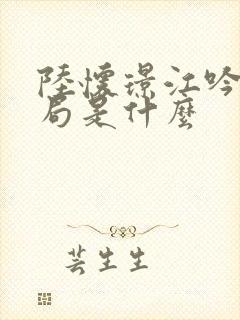 陸懷璟江吟
局是什麼
芸生生